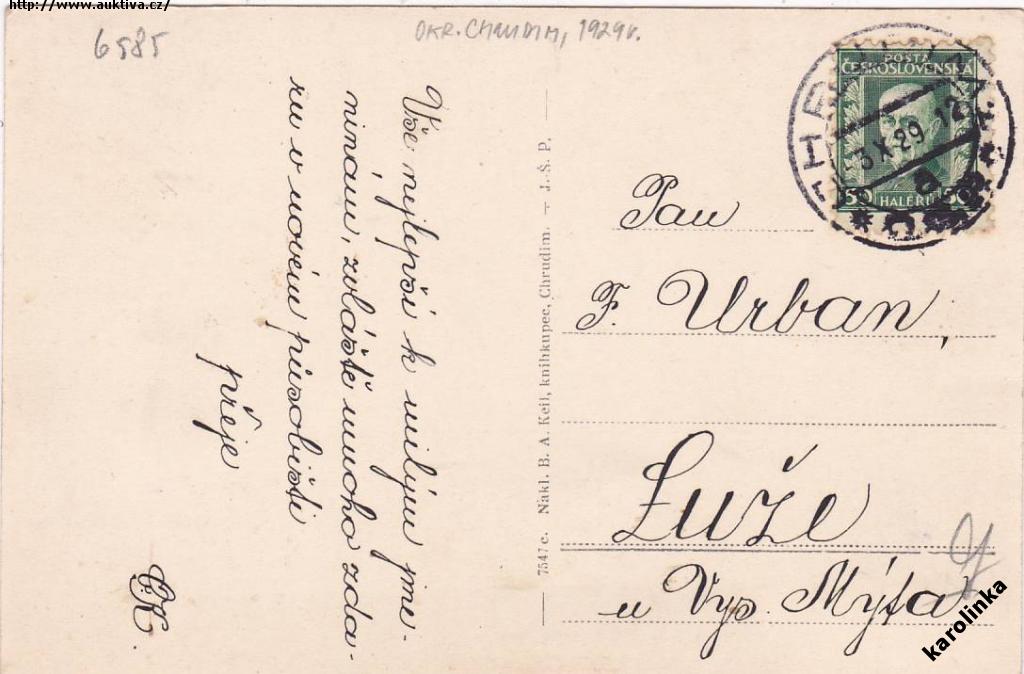 http://www.auktiva.cz/
6585
OKR. CHRUDIM, 1929r.
Vše nejlepší k milým jme-
ninám, zvláště mnoho zda-
ru v novém působišti
přeje
ČK.
7547 c. Nákl. B. A. Keil, knihkupec, Chrudim. — J. Š. P.
POŠTA
ČESKOSLOVENSKÁ
50 HALÉŘŮ 50
3 X 29 12
a
Pan
F. Urban,
Luže
u Vys. Mýta
karolinka